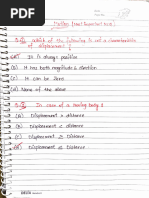 Motion (Most Important MCQ)
Q.1. Which of the following is not a characteristics
of displacement ?
(A) It is always positive
(B) It has both magnitude & direction
(C) It can be zero
(D) None of the above
In case of a moving body
(A) Displacement > distance
(B) Displacement < distance
(C) Displacement ≥ distance
(D) Displacement ≤ distance